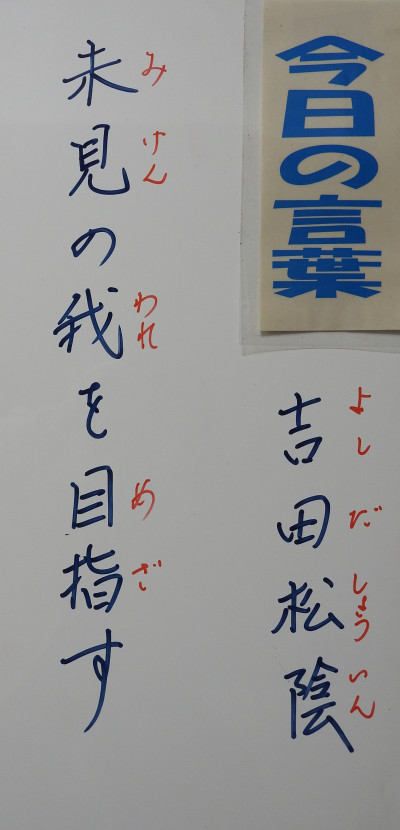 今日の言葉
吉田松陰
よしだしょういん
未見の我を目指す
みけん われ めざ